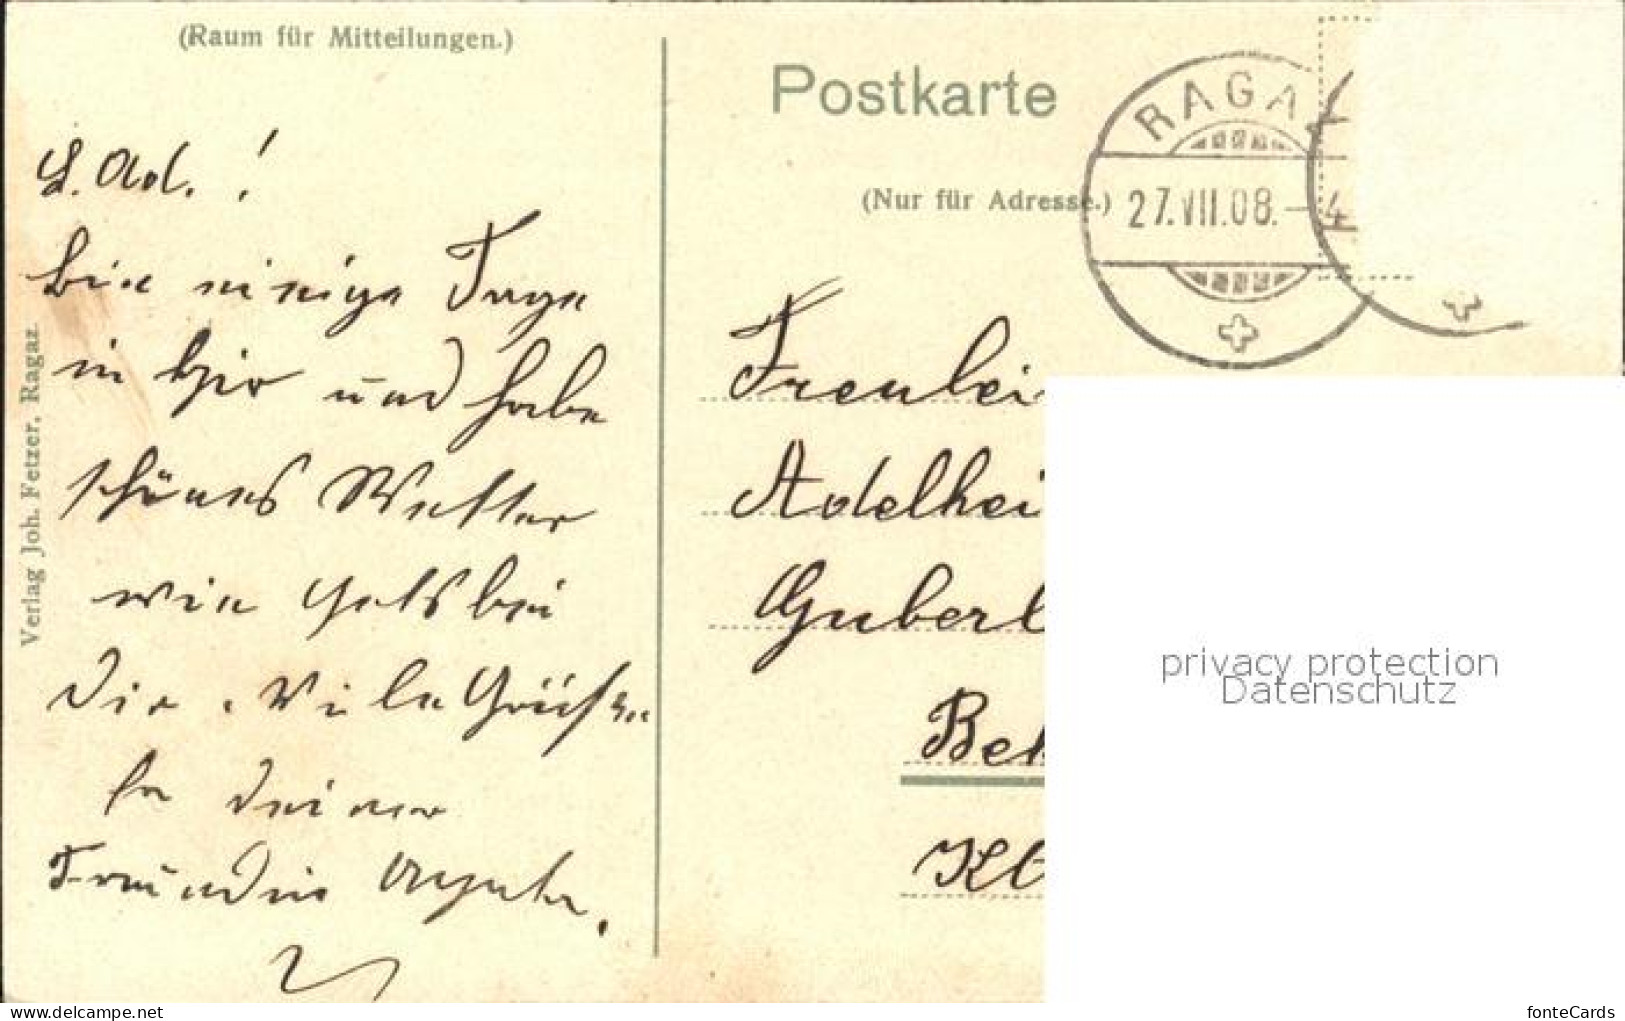 (Raum für Mitteilungen.)
L. Ad. !
bin einige Tage
in hier und habe
schönes Wetter
wie geht's bei
Dir. Viele Grüsse
von Deiner
Freundin Agatha.
Verlag Joh. Fetzer, Ragaz.
Postkarte
RAGA
27.VII.08.-4
(Nur für Adresse.)
Freulei
Adelhei
Guberl
Be
Kl
privacy protection
Datenschutz
www.delcampe.net
fonteCards